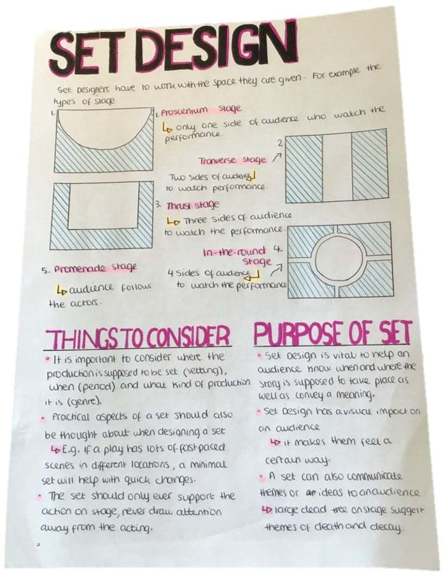 SET DESIGN
Set Designers have to work with the space they are given. For example the
types of stage
1. Proscenium stage
↳ only one side of audience who watch the
performance.
2.
Tranverse stage
Two sides of audience
to watch performance.
3. Thrust stage
↳ Three sides of audience
to watch the performance
In-the-round 4.
stage
4 sides of audience
to watch the performance
5. Promenade stage
↳ audience follow
the actors.
THINGS TO CONSIDER
• It is important to consider where the
production is supposed to be set (setting),
when (period) and what kind of production
it is (genre).
• Practical aspects of a set should also
be thought about when designing a set
↳ E.g. if a play has lots of fast paced
scenes in different locations, a minimal
set will help with quick changes.
• The set should only ever support the
action on stage, never draw attention
away from the acting.
PURPOSE OF SET
• Set design is vital to help an
audience know when and where the
story is supposed to take place as
well as convey a meaning.
• Set Design has a visual impact on
an audience
↳ it makes them feel a
certain way.
• A set can also communicate
themes or ideas to an audience
↳ large dead tree on stage suggest
themes of death and decay.